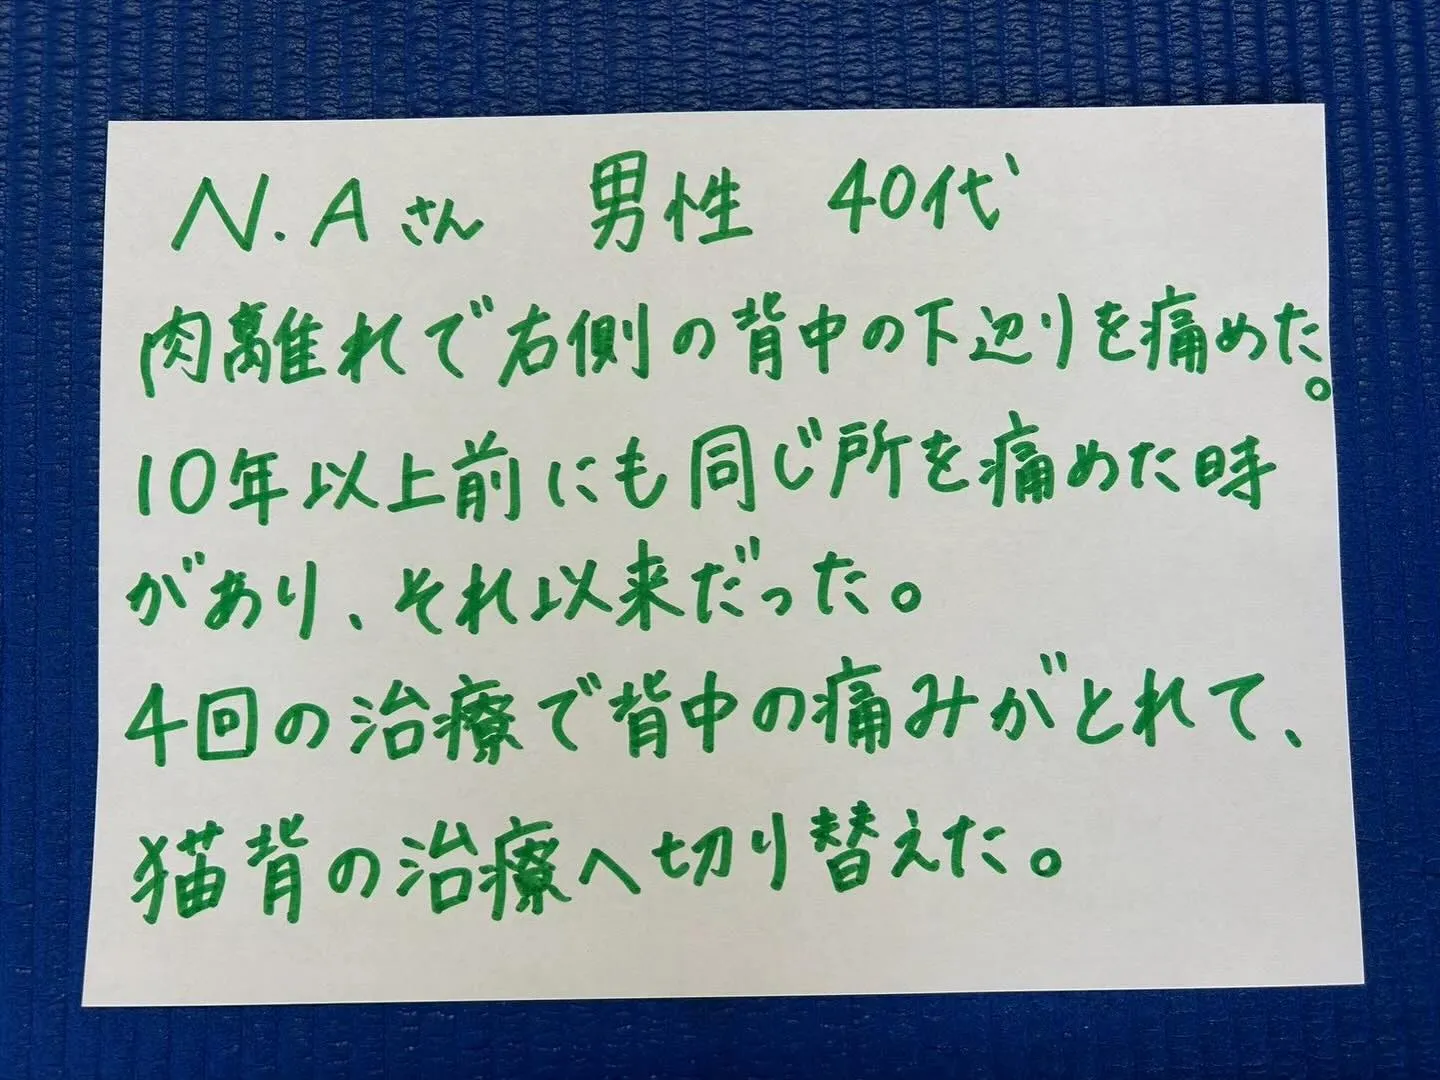 N.Aさん 男性 40代
肉離れで右側の背中の下辺りを痛めた。
10年以上前にも同じ所を痛めた時
があり、それ以来だった。
4回の治療で背中の痛みがとれて、
猫背の治療へ切り替えた。